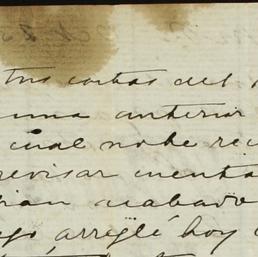 tus cartas del
una anterior
cual no he re
revisar cuenta
bian acabado
go arreglé hoy